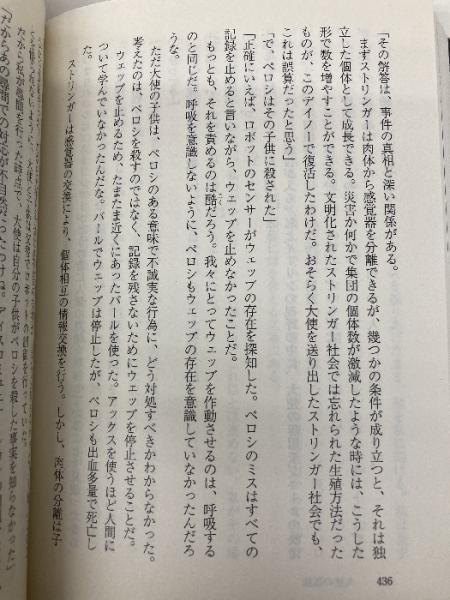 「その解答は、事件の真相と深い関係がある。
まずストリンガーは肉体から感覚器を分離できるが、幾つかの条件が成り立つと、それは独
立した個体として成長できる。災害か何かで集団の個体数が激減したような時には、こうした
形で数を増やすことができる。文明化されたストリンガー社会では忘れられた生殖方法だった
ものが、このデイノーで復活したわけだ。おそらく大使を送り出したストリンガー社会でも、
これは誤算だったと思う」
「で、ペロシはその子供に殺された」
「正確にいえば、ロボットのセンサーがウェッブの存在を探知した。ペロシのミスはすべての
記録を止めると言いながら、ウェッブを止めなかったことだ。
もっとも、それを責めるのは酷だろう。我々にとってウェッブを作動させるのは、呼吸する
のと同じだ。呼吸を意識しないように、ペロシもウェッブの存在を意識していなかったんだろ
うな。
ただ大使の子供は、ペロシのある意味で不誠実な行為に、どう対処すべきかわからなかった。
考えたのは、ペロシを殺すのではなく、記録を残さないためにウェッブを停止させることだ。
ウェッブを止めるため、たまたま近くにあったバールを使った。アックスを使うほど人間に
ついて学んでいなかったんだな。バールでウェッブは停止したが、ペロシも出血多量で死亡し
た。
ストリンガーは感覚器の交換により、個体相互の情報交換を行う。しかし、肉体の分離は子
だから私が尋問を行った時点で、大使は自分の子供がペロシを殺した事実を知らなかった」
「だからあの尋問での対応が不自然だったわけね。
436